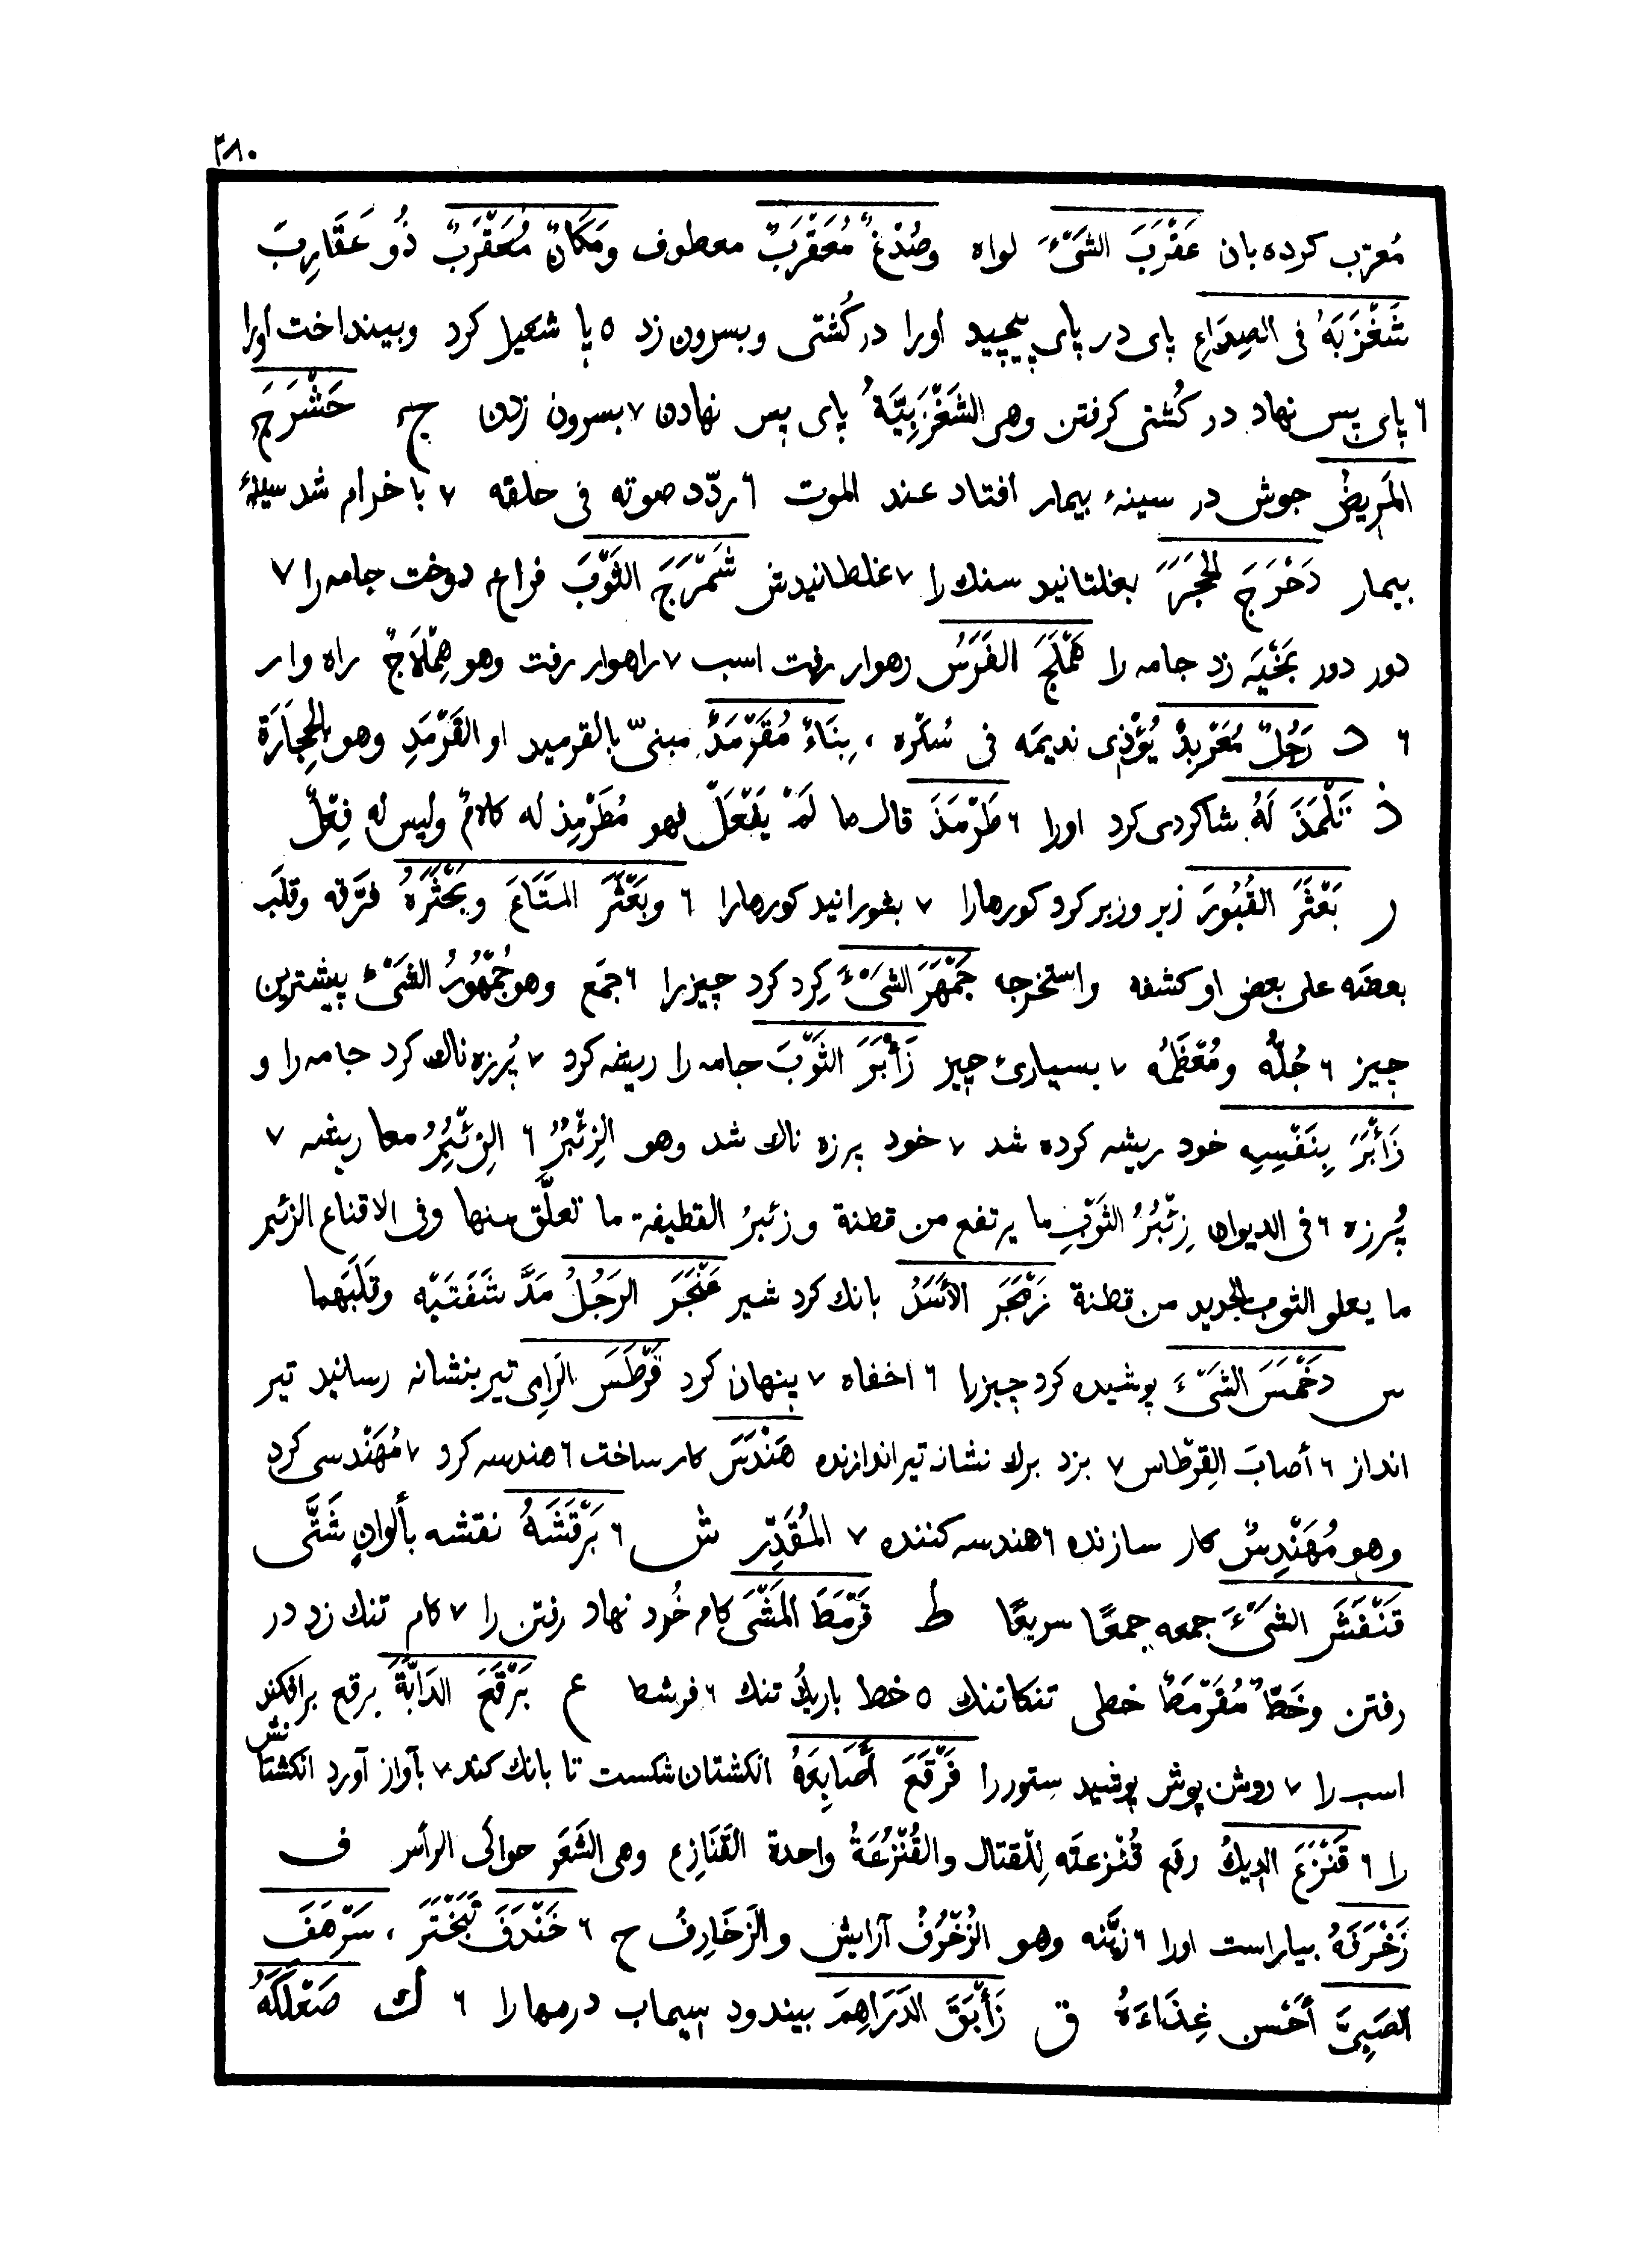 ۳۸۰
مُعرّب کرده بان عَقْرَبَ الشَیْءَ لواه وصُدْغٌ مُعَقْرَبٌ معطوف ومَکَانٌ مُعَقْرَبٌ ذُو عَقَارِبَ
شَغْزَبَهُ فی الصِرَاعِ پای در پای پیچید اورا در کُشتی وبسرون زد ۵ پا شغیل کرد وبینداخت اورا
۶ پای پس نهاد در کُشتی کرفتن وهی الشَغْزَبِیَّةُ پای پس نهادن ۷ بسرون زدن ج حَشْرَجَ
المَرِیضُ جوش در سینهٔ بیمار افتاد عند الموت ۶ ردّد صوته فی حلقه ۷ با خرام شد سینهٔ
بیمار دَحْرَجَ الحَجَرَ بغلتانید سنك را ۷ غلطانیدش شَمْرَجَ الثَوْبَ فراخ دوخت جامه را ۷
دور دور بَخْیَه زد جامه را هَمْلَجَ الفَرَسُ رهوار رفت اسب ۷ راهوار رفت وهو هِمْلَاجٌ راه وار
۶ د رَجُلٌ مُعَرْبِدٌ یُؤْذِی ندیمَه فی سُکْرِه ، بِنَاءٌ مُقَرْمَدٌ مبنیّ بالقرمید او القَرْمَدِ وهو الحِجَارَة
ذ تَلْمَذَ لَهُ شاکردی کرد اورا ۶ طَرْمَذَ قال ما لَمْ یَفْعَلْ فهو مُطَرْمِذ له کلامٌ ولیس له فِعْلٌ
ر بَعْثَرَ القُبُورَ زیر وزبر کرد کورهارا ۷ بشورانید کورهارا ۶ وبَعْثَرَ المَتَاعَ وبَحْثَرَهُ فرَّقه وقلَب
بعضَه علی بعض او کشفه واستخرجه جَمْهَرَ الشَیْءَ کِرد کرد چیزرا ۶ جمَع وهو جُمْهُورُ الشَیْءِ پیشترین
چیز ۶ جُلُّه ومُعْظَمُه ۷ بسیاریٔ چیز زَأْبَرَ الثَوْبَ جامه را ریشه کرد ۷ پُرزه ناك کرد جامه را و
زَأْبَرَ بِنَفْسِهِ خود ریشه کرده شد ۷ خود پرزه ناك شد وهو الزِئْبَرُ ۶ الزِئْبِرُ معا ریشه ۷
پُرزه ۶ فی الدیوان زِئْبُرُ الثَوْبِ ما یرتفع من قطنة وزئبرُ القطیفة ما تعلَّق منها وفی الاقناع الزئبر
ما یعلو الثوب الجدید من قطنة زَمْجَرَ الأَسَدُ بانك کرد شیر عَنْجَرَ الرَجُلُ مَدَّ شَفَتَیْه وقَلَبَهما
س دَخْمَسَ الشَیْءَ پوشیده کرد چیزرا ۶ اخفاه ۷ پنهان کرد قَرْطَسَ الرَامِی تیر بنشانه رسانید تیر
انداز ۶ أصابَ القِرْطاس ۷ بزد برك نشانه تیر اندازنده هَنْدَسَ کار ساخت ۶ هندسه کرد ۷ مُهَنْدسی کرد
وهو مُهَنْدِسٌ کار سازنده ۶ هندسه کننده ۷ المُقَدِّر ش ۶ بَرْقَشَهُ نقشه بألوانٍ شَتَّی
قَنْفَشَ الشَیْءَ جمعه جمعًا سریعًا ط قَرْمَطَ المَشْیَ کام خُرد نهاد رفتن را ۷ کام تنك زد در
رفتن وخَطٌّ مُقَرْمَطٌ خطی تنکاتنك ۵ خط باریكُ تنك ۶ فرشطا ع بَرْقَعَ الدَابَّةَ برقع برافکند
اسب را ۷ روشن پوش پوشید ستوررا فَرْقَعَ أَصَابِعَهُ انکشتان شکست تا بانك کند ۷ بآواز آورد انکشتانش
را ۶ قَنْزَعَ الدِیكُ رفع قُنْزعتَه لِلْقتال والقُنْزُعَةُ واحدة القَنَازِع وهی الشَعَر حوالَی الرأس ف
زَخْرَفَهُ بیاراست اورا ۶ زیَّنه وهو الزُخْرُفُ آرایش والزَخَارِفُ ج ۶ خَنْدَفَ تَبَخْتَرَ ، سَرْهَفَ
الصَبِیَّ أَحْسن غِذَاءَهُ ق زَأْبَقَ الدَرَاهِمَ بیندود بسیماب درمهارا ۶ ك صَعْلَكَهُ